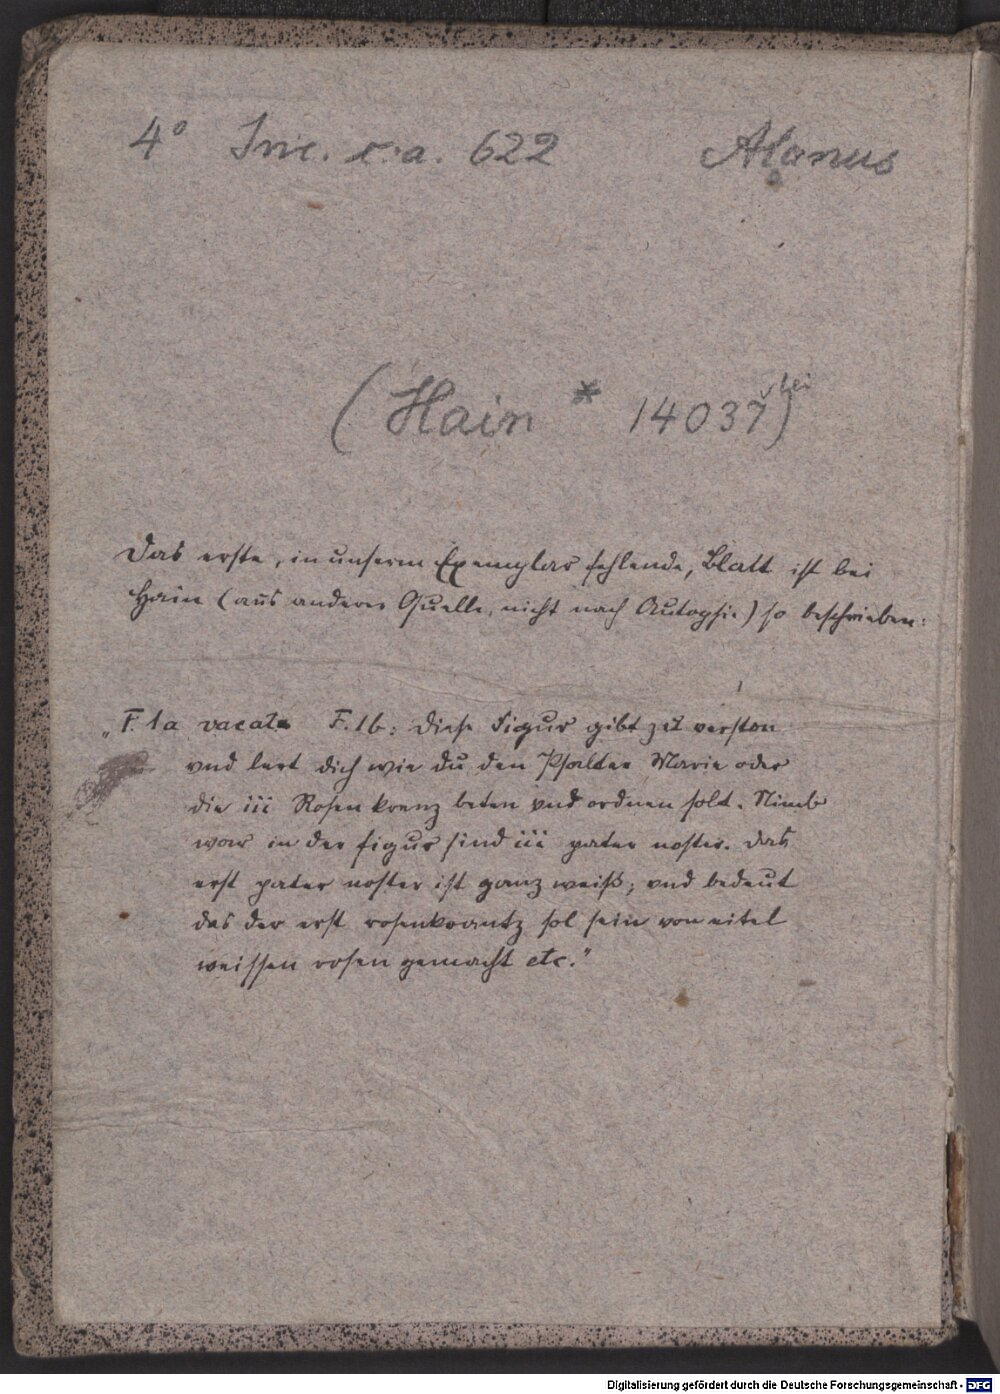 4° Inc. c.a. 622 Alanus
(Hain * 14037) bei
Das erste, in unserm Exemplar fehlende, Blatt ist bei
Hain (aus anderer Quelle, nicht nach Autopsie) so beschrieben:
„F. 1a vacat. F. 1b: Diese Figur gibt zů verston
vnd lert dich wie du den Psalter Marie oder
die iii Rosenkrenz beten vnd ordnen solt. Nimb
war in der figur sind iii pater noster. Das
erst pater noster ist ganz weiß; vnd bedeut
das der erst rosenkrantz sol sein von eitel
weissen rosen gemacht etc."
Digitalisierung gefördert durch die Deutsche Forschungsgemeinschaft - DFG